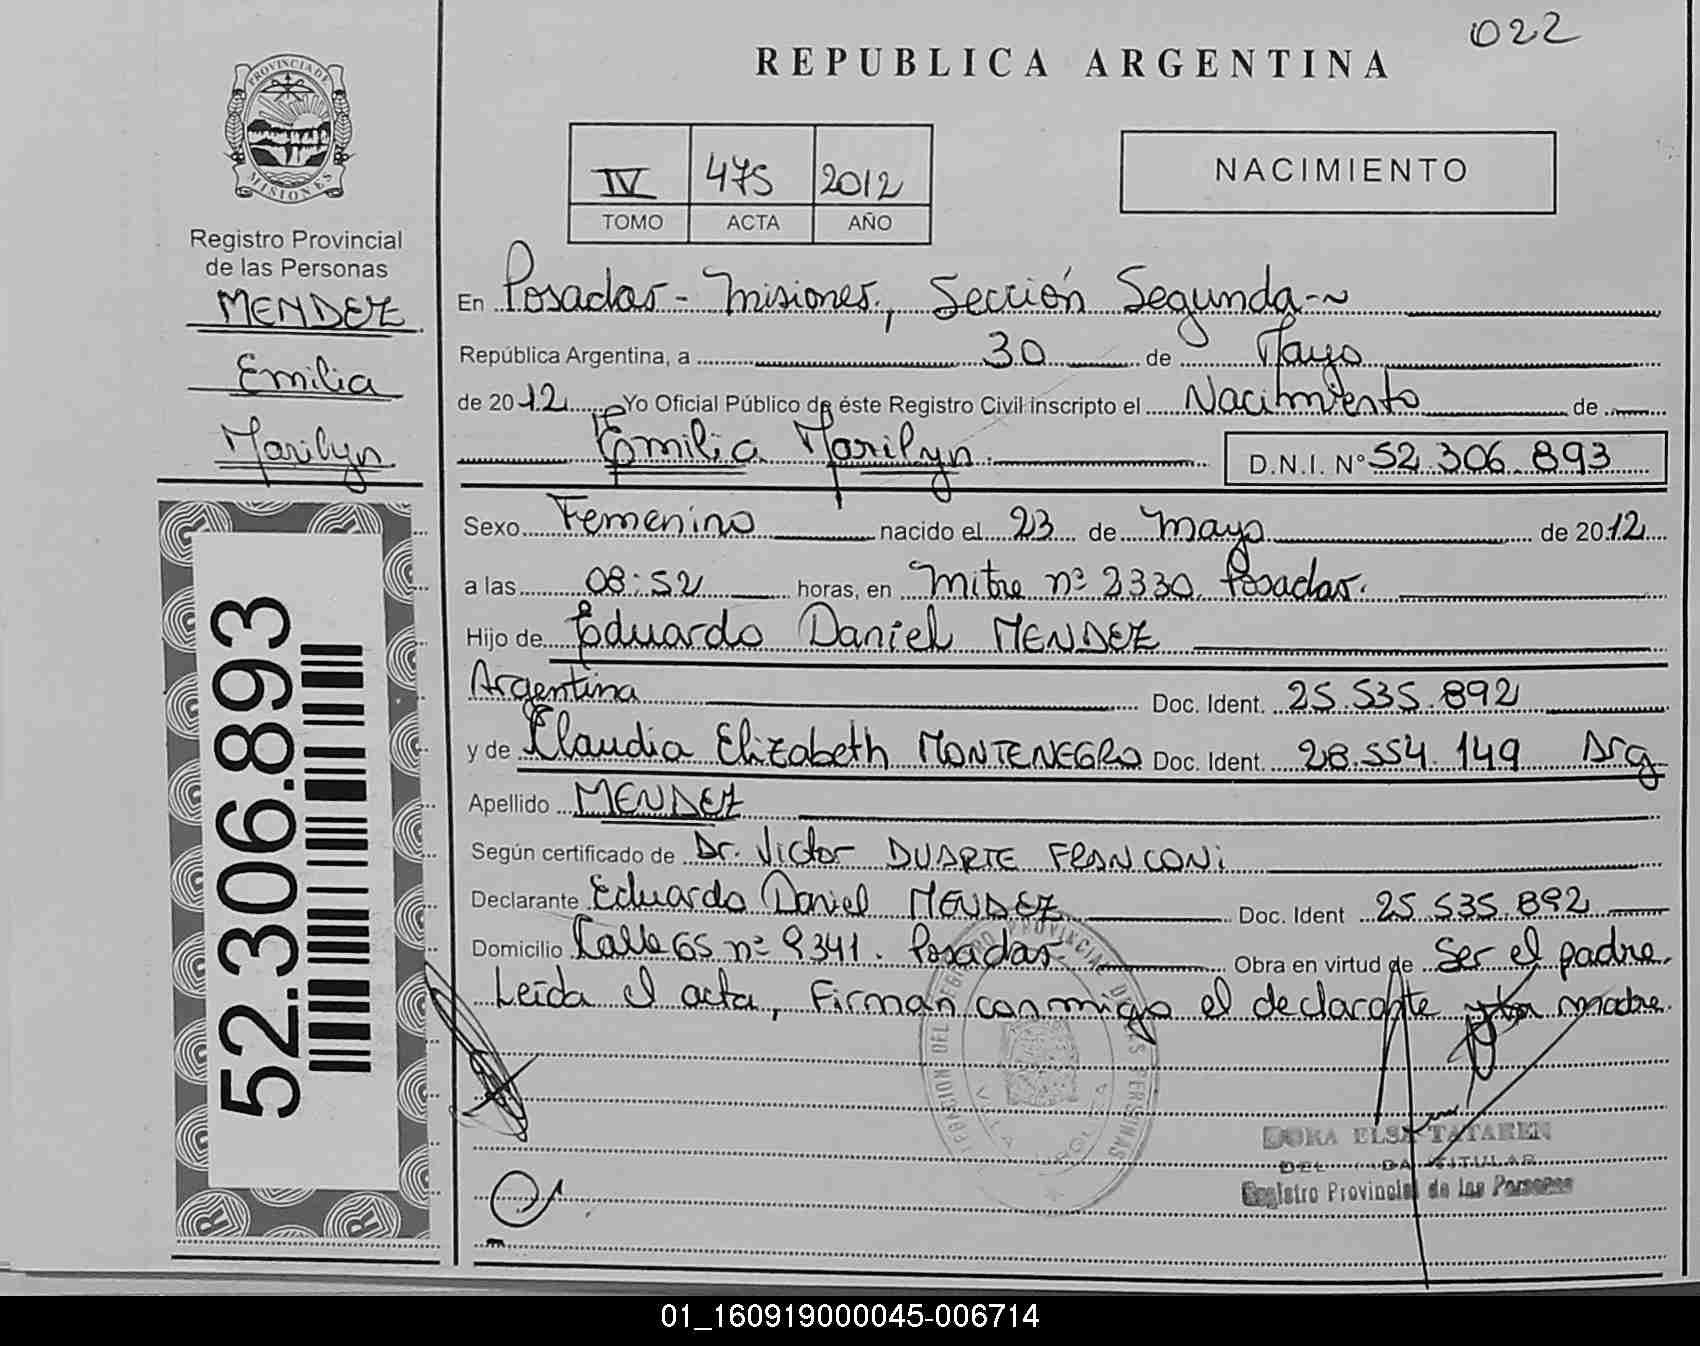 022
REPUBLICA ARGENTINA
PROVINCIA DE
MISIONES
IV 475 2012
TOMO ACTA AÑO
NACIMIENTO
Registro Provincial
de las Personas
MENDEZ
Emilia
Marilyn
52.306.893
En Posadas - Misiones, Sección Segunda
República Argentina, a 30 de Mayo
de 2012 Yo Oficial Público de éste Registro Civil inscripto el Nacimiento de
Emilia Marilyn D.N.I. N° 52.306.893
Sexo Femenino nacido el 23 de Mayo de 2012
a las 08:52 horas, en Mitre nº 2330 Posadas.
Hijo de Eduardo Daniel MENDEZ
Argentina Doc. Ident. 25.535.892
y de Claudia Elizabeth MONTENEGRO Doc. Ident. 28.554.149 Arg
Apellido MENDEZ
Según certificado de Dr. Victor DUARTE FRANCONI
Declarante Eduardo Daniel MENDEZ Doc. Ident 25.535.892
Domicilio Calle 65 nº 9341. Posadas Obra en virtud de Ser el padre.
Leída el acta, Firman conmigo el declarante y la madre.
DORA ELSA TATAREN
TITULAR
Registro Provincial de las Personas
01_160919000045-006714